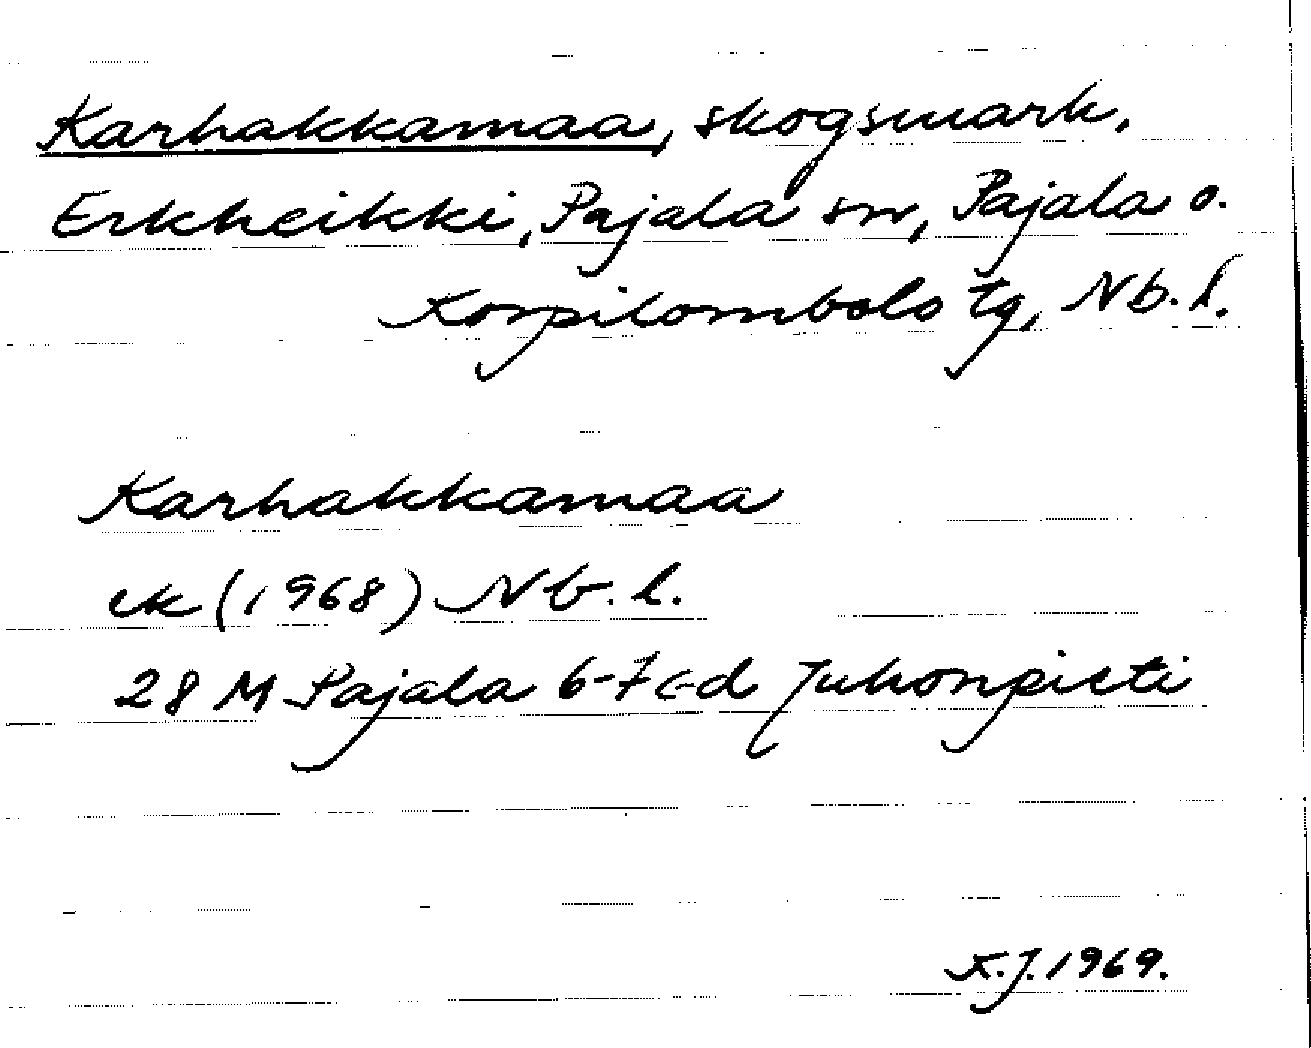 Karhakkamaa, skogsmark,
Erkheikki, Pajala sn, Pajala o.
Korpilombolo tg, Nb. l.
Karhakkamaa
ek (1968) Nb. l.
28 M Pajala 6-7 c-d Juhonpieti
K.J. 1969.